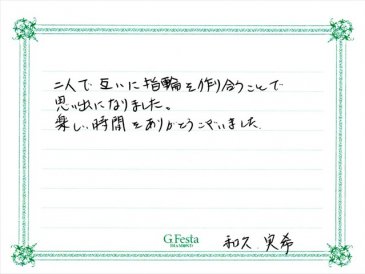 二人で互いに指輪を作り合うことで
思い出になりました。
楽しい時間をありがとうございました
G.Festa
DIAMOND
和久 実希